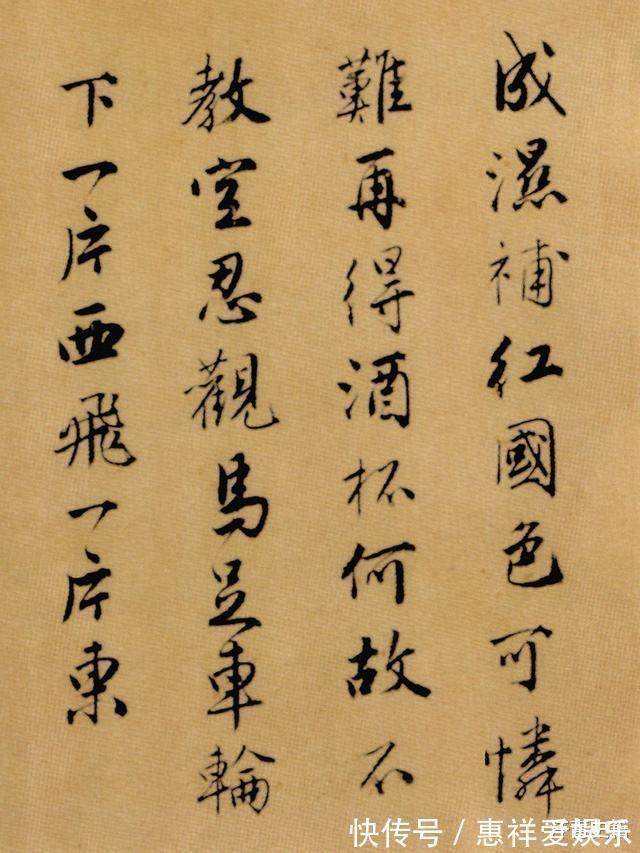 成濕補紅國色可憐
難再得酒杯何故不
教空忍觀馬足車輪
下一片西飛一片東
快传号 / 惠祥爱娱乐